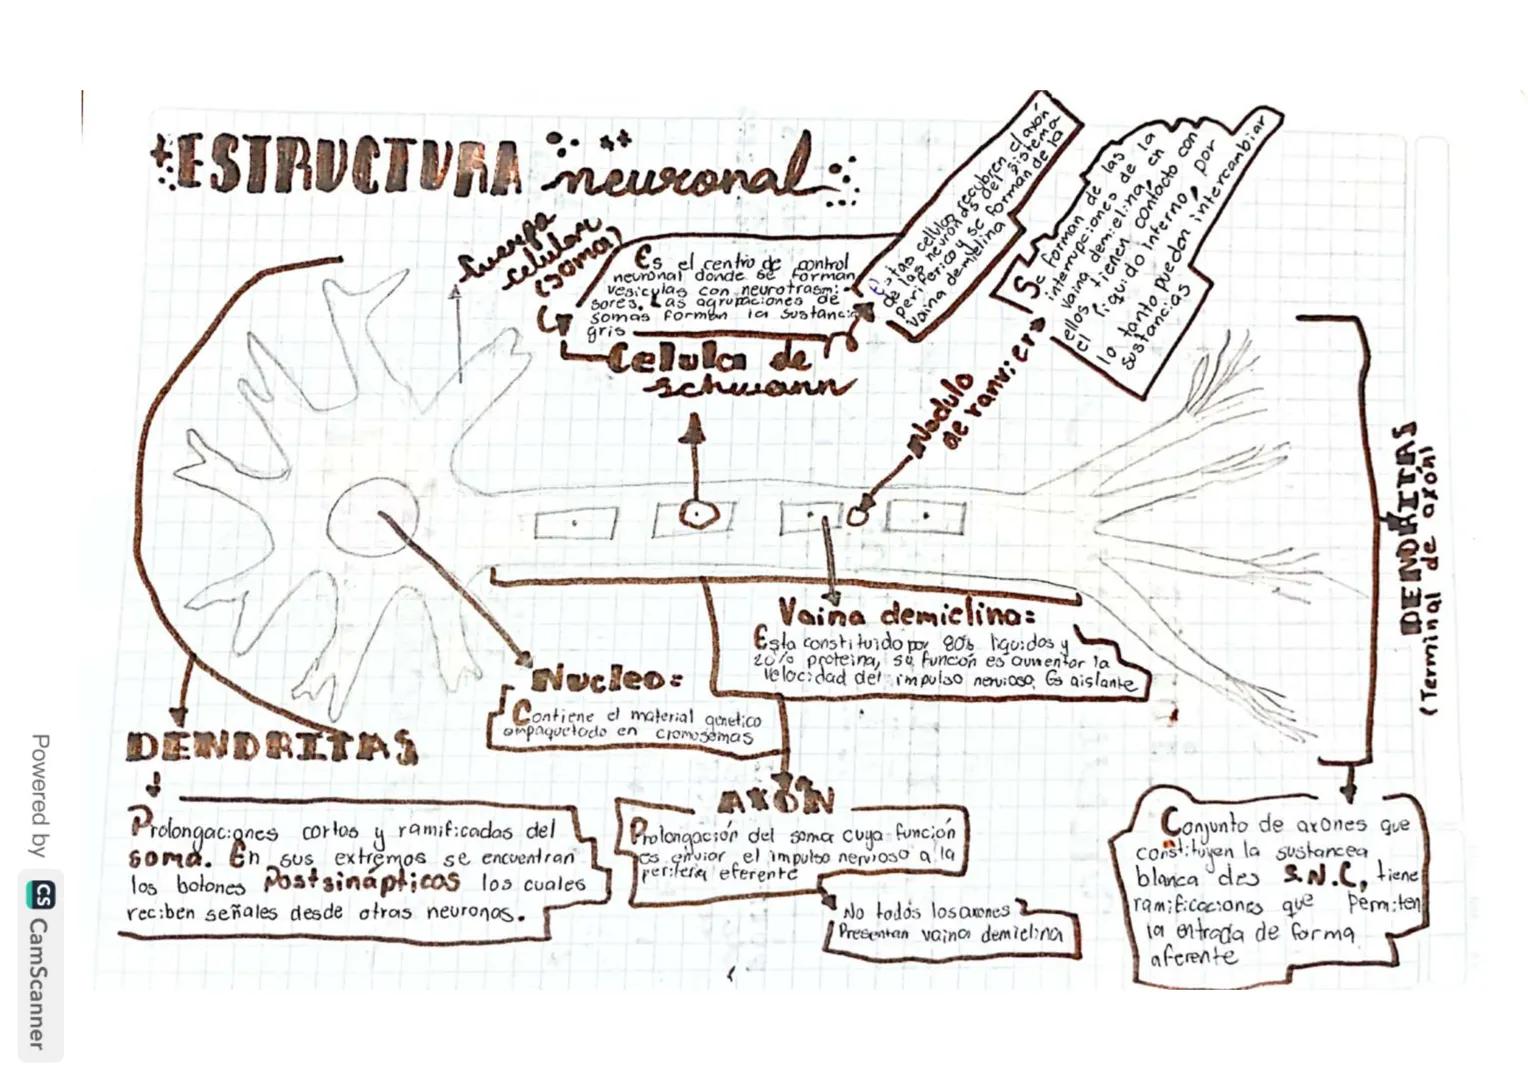 ESTRUCTURA neuronal
Cuerpo
celular
(soma)
Es el centro de control
neuronal donde se forman
vesiculas con neurotrasmi-
sores. Las agrupaciones de
somas forman la sustancia
gris
Celula de
schwann
Estas celulas recubren el axón
de las neuronas del sistema
periferico y se forman de la
vaina demielina
Nodulo
de ranvier
Se forman de las la
interrupciones de en
vaina demielina,
ellos tienen contacto con
el liquido interno, por
lo tanto puedan intercambiar
sustancias
DENDRITAS
(Terminal de axón)
Vaina demielina:
Esta constituido por 80% liquidos y
20% proteina, su función es aumentar la
velocidad del impulso nervioso, Es aislante
Nucleo:
Contiene el material genetico
empaquetado en cromosomas
DENDRITAS
Prolongaciones cortas y ramificadas del
soma. En sus extremos se encuentran
los botones Postsinápticos los cuales
reciben señales desde otras neuronas.
AXÓN
Prolongación del soma cuya función
es enviar el impulso nervioso a la
periferia eferente
No todos los axones
Presentan vaina demielina
Conjunto de axones que
constituyen la sustancea
blanca des S.N.C, tiene
ramificaciones que permiten
la entrada de forma
aferente
Powered by CS CamScanner